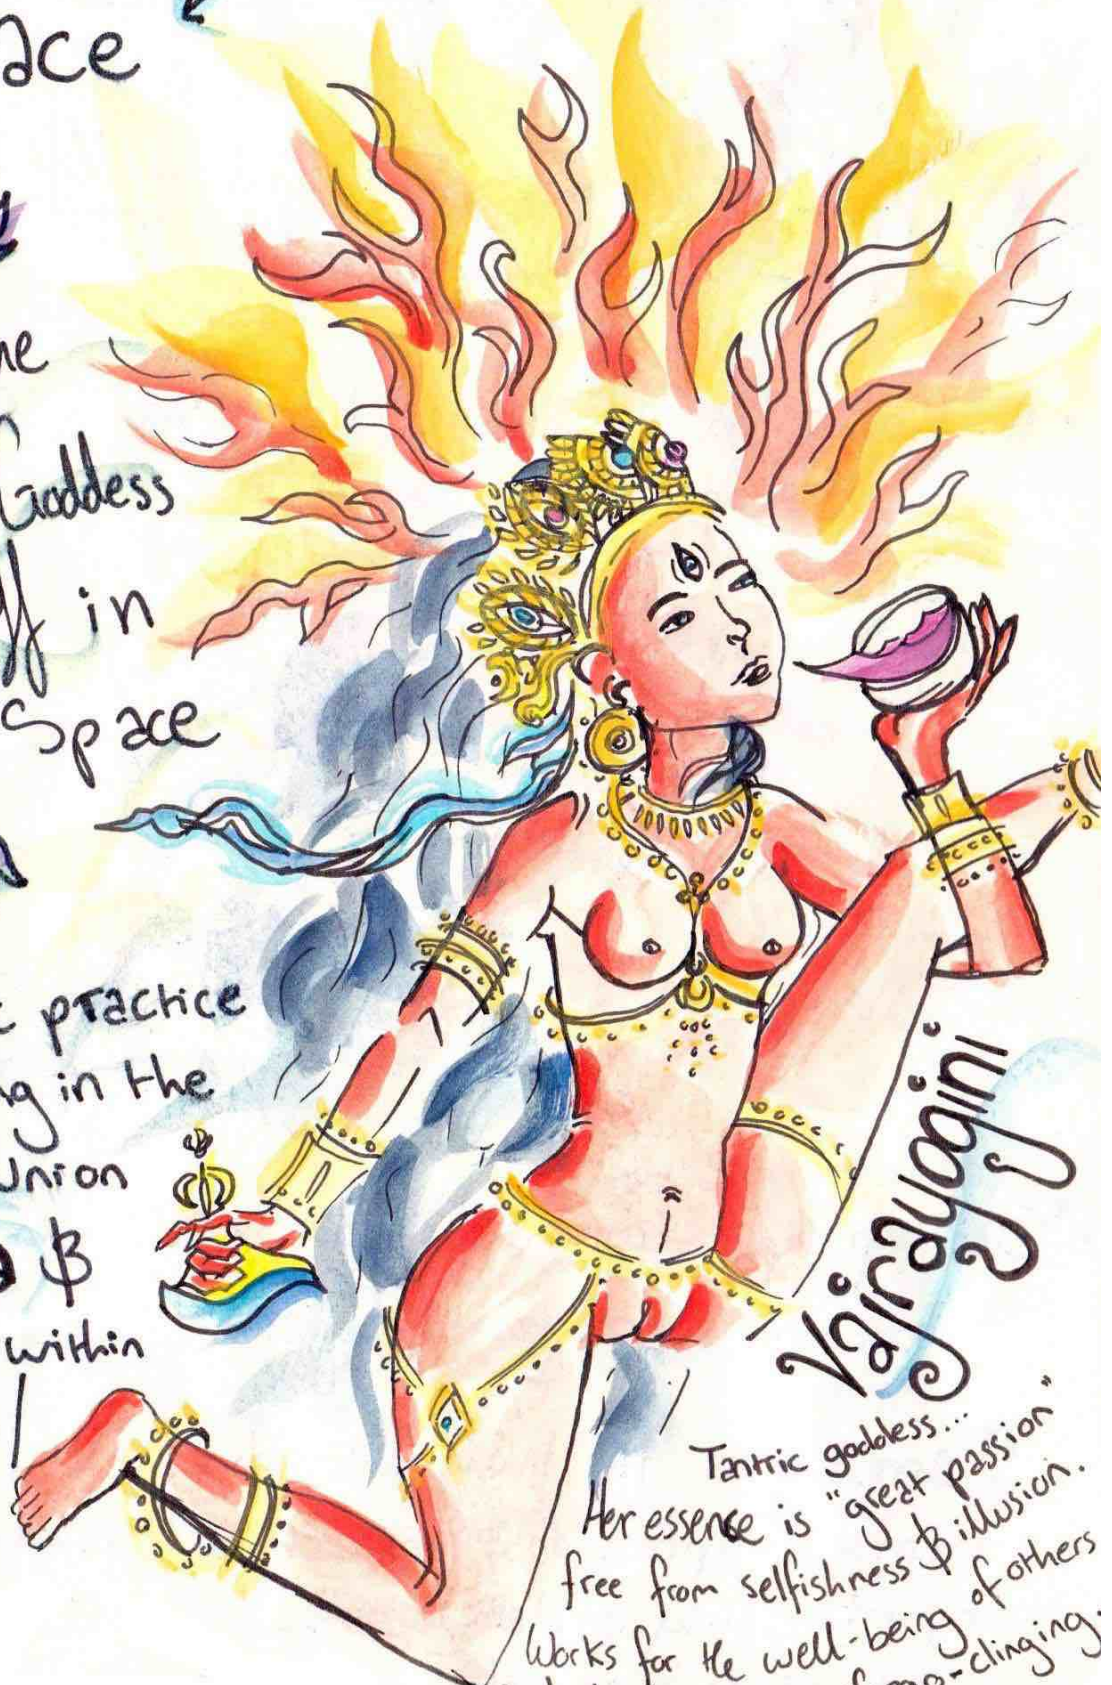 ace
ne
Goddess
ff in
Space
c practice
ng in the
Union
&
within
Vajrayogini
Tantric goddess...
Her essence is "great passion"
free from selfishness & illusion.
Works for the well-being of others
ego-clinging.